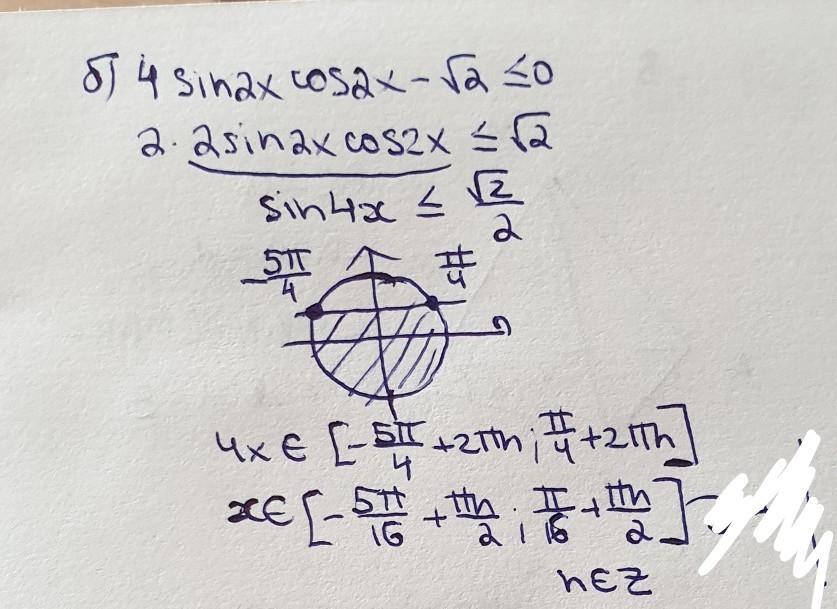 б) 4 sin2x cos2x - √2 ≤ 0
2 · 2sin2x cos2x ≤ √2
sin4x ≤ √2/2
-5π/4 π/4
4x ∈ [-5π/4 + 2πn; π/4 + 2πn]
x ∈ [-5π/16 + πn/2; π/16 + πn/2]
n ∈ Z